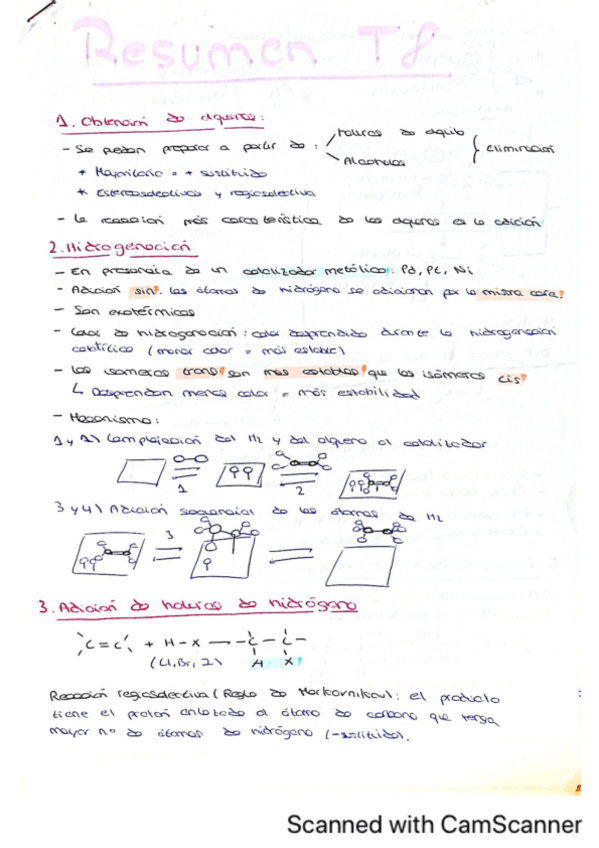 Resumen T8
1. Obtención de alquenos:
- Se pueden preparar a partir de: Haluros de alquilo
Alcoholes
Eliminación
* Mayoritario = + sustituido
* Estereoselectivas y regioselectiva
- La reacción más característica de los alquenos es la adición
2. Hidrogenación
- En presencia de un catalizador metálico: Pd, Pt, Ni
- Adición sin: los átomos de hidrógeno se adicionan por la misma cara.
- Son exotérmicas
- Calor de hidrogenación: calor desprendido durante la hidrogenación
catalítica (menor calor = más estable)
- Los isómeros trans son más estables que los isómeros cis
↳ Desprenden menos calor = más estabilidad
- Mecanismo:
1 y 2) Complejación del H2 y del alqueno al catalizador
1
2
3 y 4) Adición secuencial de los átomos de H2
3
3. Adición de haluros de hidrógeno
C=C + H-X → -C-C-
(Cl, Br, I) H X
Reacción regioselectiva (Regla de Markovnikov): el producto
tiene el protón enlazado al átomo de carbono que tenga
mayor nº de átomos de hidrógeno (-sustituido).
Scanned with CamScanner